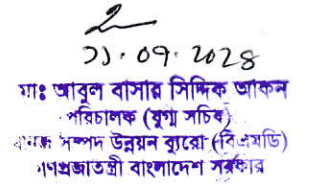 ১১.০৭.২০২৪
মোঃ আবুল বাসার সিদ্দিক আকন
পরিচালক (যুগ্ম সচিব)
সম্পদ উন্নয়ন ব্যুরো (বিএমডি)
গণপ্রজাতন্ত্রী বাংলাদেশ সরকার